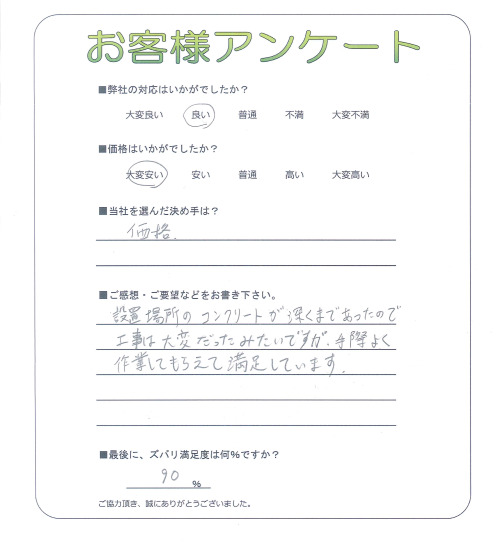 お客様アンケート
■弊社の対応はいかがでしたか？
大変良い 良い 普通 不満 大変不満
■価格はいかがでしたか？
大変安い 安い 普通 高い 大変高い
■当社を選んだ決め手は？
価格.
■ご感想・ご要望などをお書き下さい。
設置場所のコンクリートが深くまであったので
工事は大変だったみたいですが、手際よく
作業してもらえて満足しています.
■最後に、ズバリ満足度は何%ですか？
90 %
ご協力頂き、誠にありがとうございました。